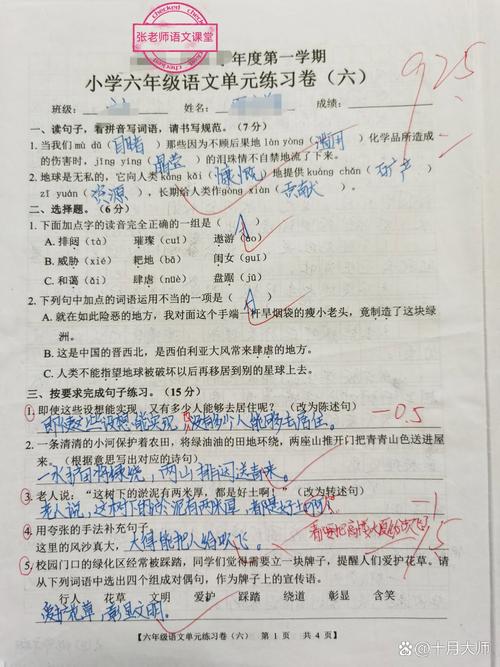 张老师语文课堂
年度第一学期
小学六年级语文单元练习卷（六）
925
班级： 姓名： 成绩：
一、读句子，看拼音写词语，请书写规范。（7 分）
1. 当我们 mù dǔ（目睹）那些因为不顾后果地 làn yòng（滥用）化学品所造成
的伤害时，jīng yíng（晶莹）的泪珠情不自禁地流了下来。
2. 地球是无私的，它向人类 kāng kǎi（慷慨）地提供 kuàng chǎn（矿产）
zī yuán（资源），长期给人类作 gòng xiàn（贡献）
二、选择题。（6 分）
1. 下面加点字的读音完全正确的一组是（A）
A. 排闼（tà） 璀璨（guī） 遨游（áo）
B. 威胁（xié） 耙地（bà） 闺女（guī）
C. 和蔼（ǎi） 肆虐（nüè） 盘踞（jū）
2. 下列句中加点的词语运用不当的一项是（A）
A. 就在如此险恶的地方，我面对这个手端一杆旱烟袋的瘦小老头，竟制造了这块绿
洲。
B. 这是中国的晋西北，是西伯利亚大风常来肆虐的地方。
C. 人类不能指望地球被破坏以后再移居到别的星球上去。
三、按要求完成句子练习。（15 分）
1. 即使这些设想能实现，又有多少人能够去居住呢？（改为陈述句）
即使这些设想能实现，没有多少人能够去居住。
-0.5
2. 一条清清的小河保护着农田，将绿油油的田地环绕，两座山推开门把青青山色送进屋
来。（根据意思写出对应的诗句）
一水护田将绿绕，两山排闼送青来。
3. 老人说：“这树下的淤泥有两米厚，都是好土啊！”（改为转述句）
老人说，这树下的淤泥有两米厚，都是好土啊。
-1
4. 用夸张的手法补充句子。
这里的风沙真大，大得能把人给吹飞。
5. 校园门口的绿化区经常被踩踏，同学们觉得需要立一块牌子，提醒人们爱护花草。请
从下列词语中选出四个组成对偶句，作为牌子上的宣传语。
行人 花草 文明 爱护 踩踏 绕道 彰显 含笑
爱护花草，彰显文明。
【六年级语文单元练习卷（六） 第 1 页 共 4 页】
@十月大师